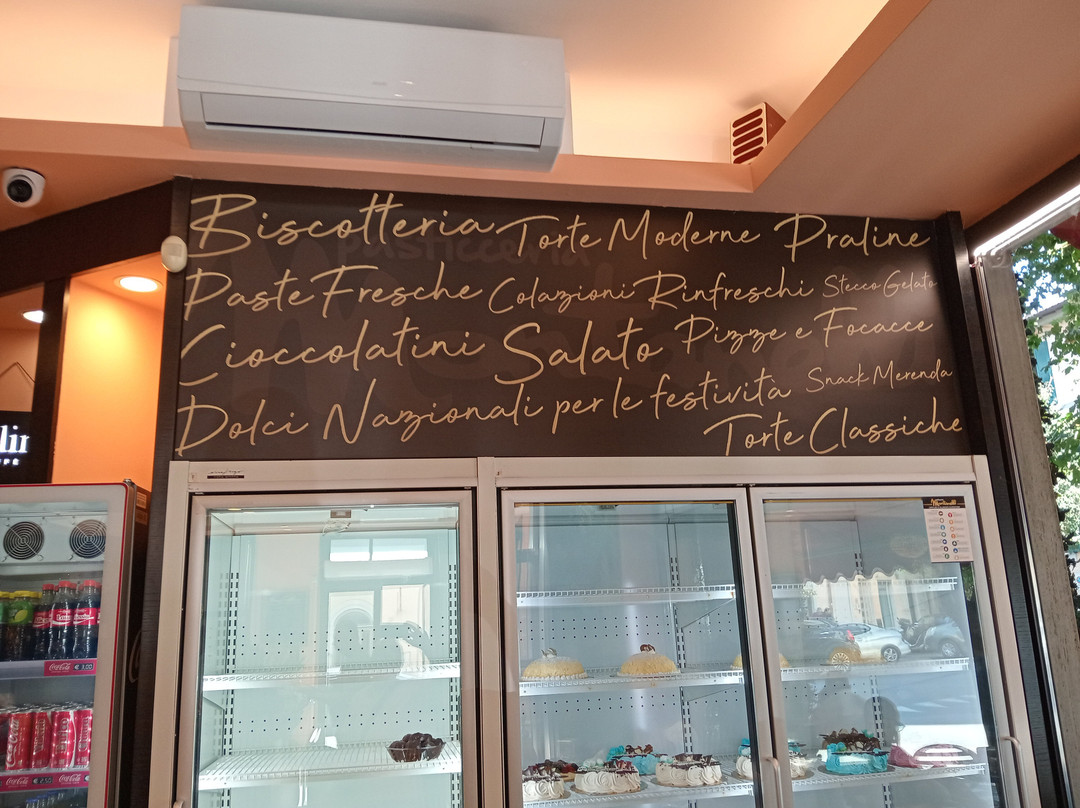 Biscotteria Torte Moderne Praline
Paste Fresche Colazioni Rinfreschi Stecco Gelato
Cioccolatini Salato Pizze e Focacce
Dolci Nazionali per le festività Snack Merenda
Torte Classiche
Pasticceria
Coca-Cola € 3.00
Coca-Cola